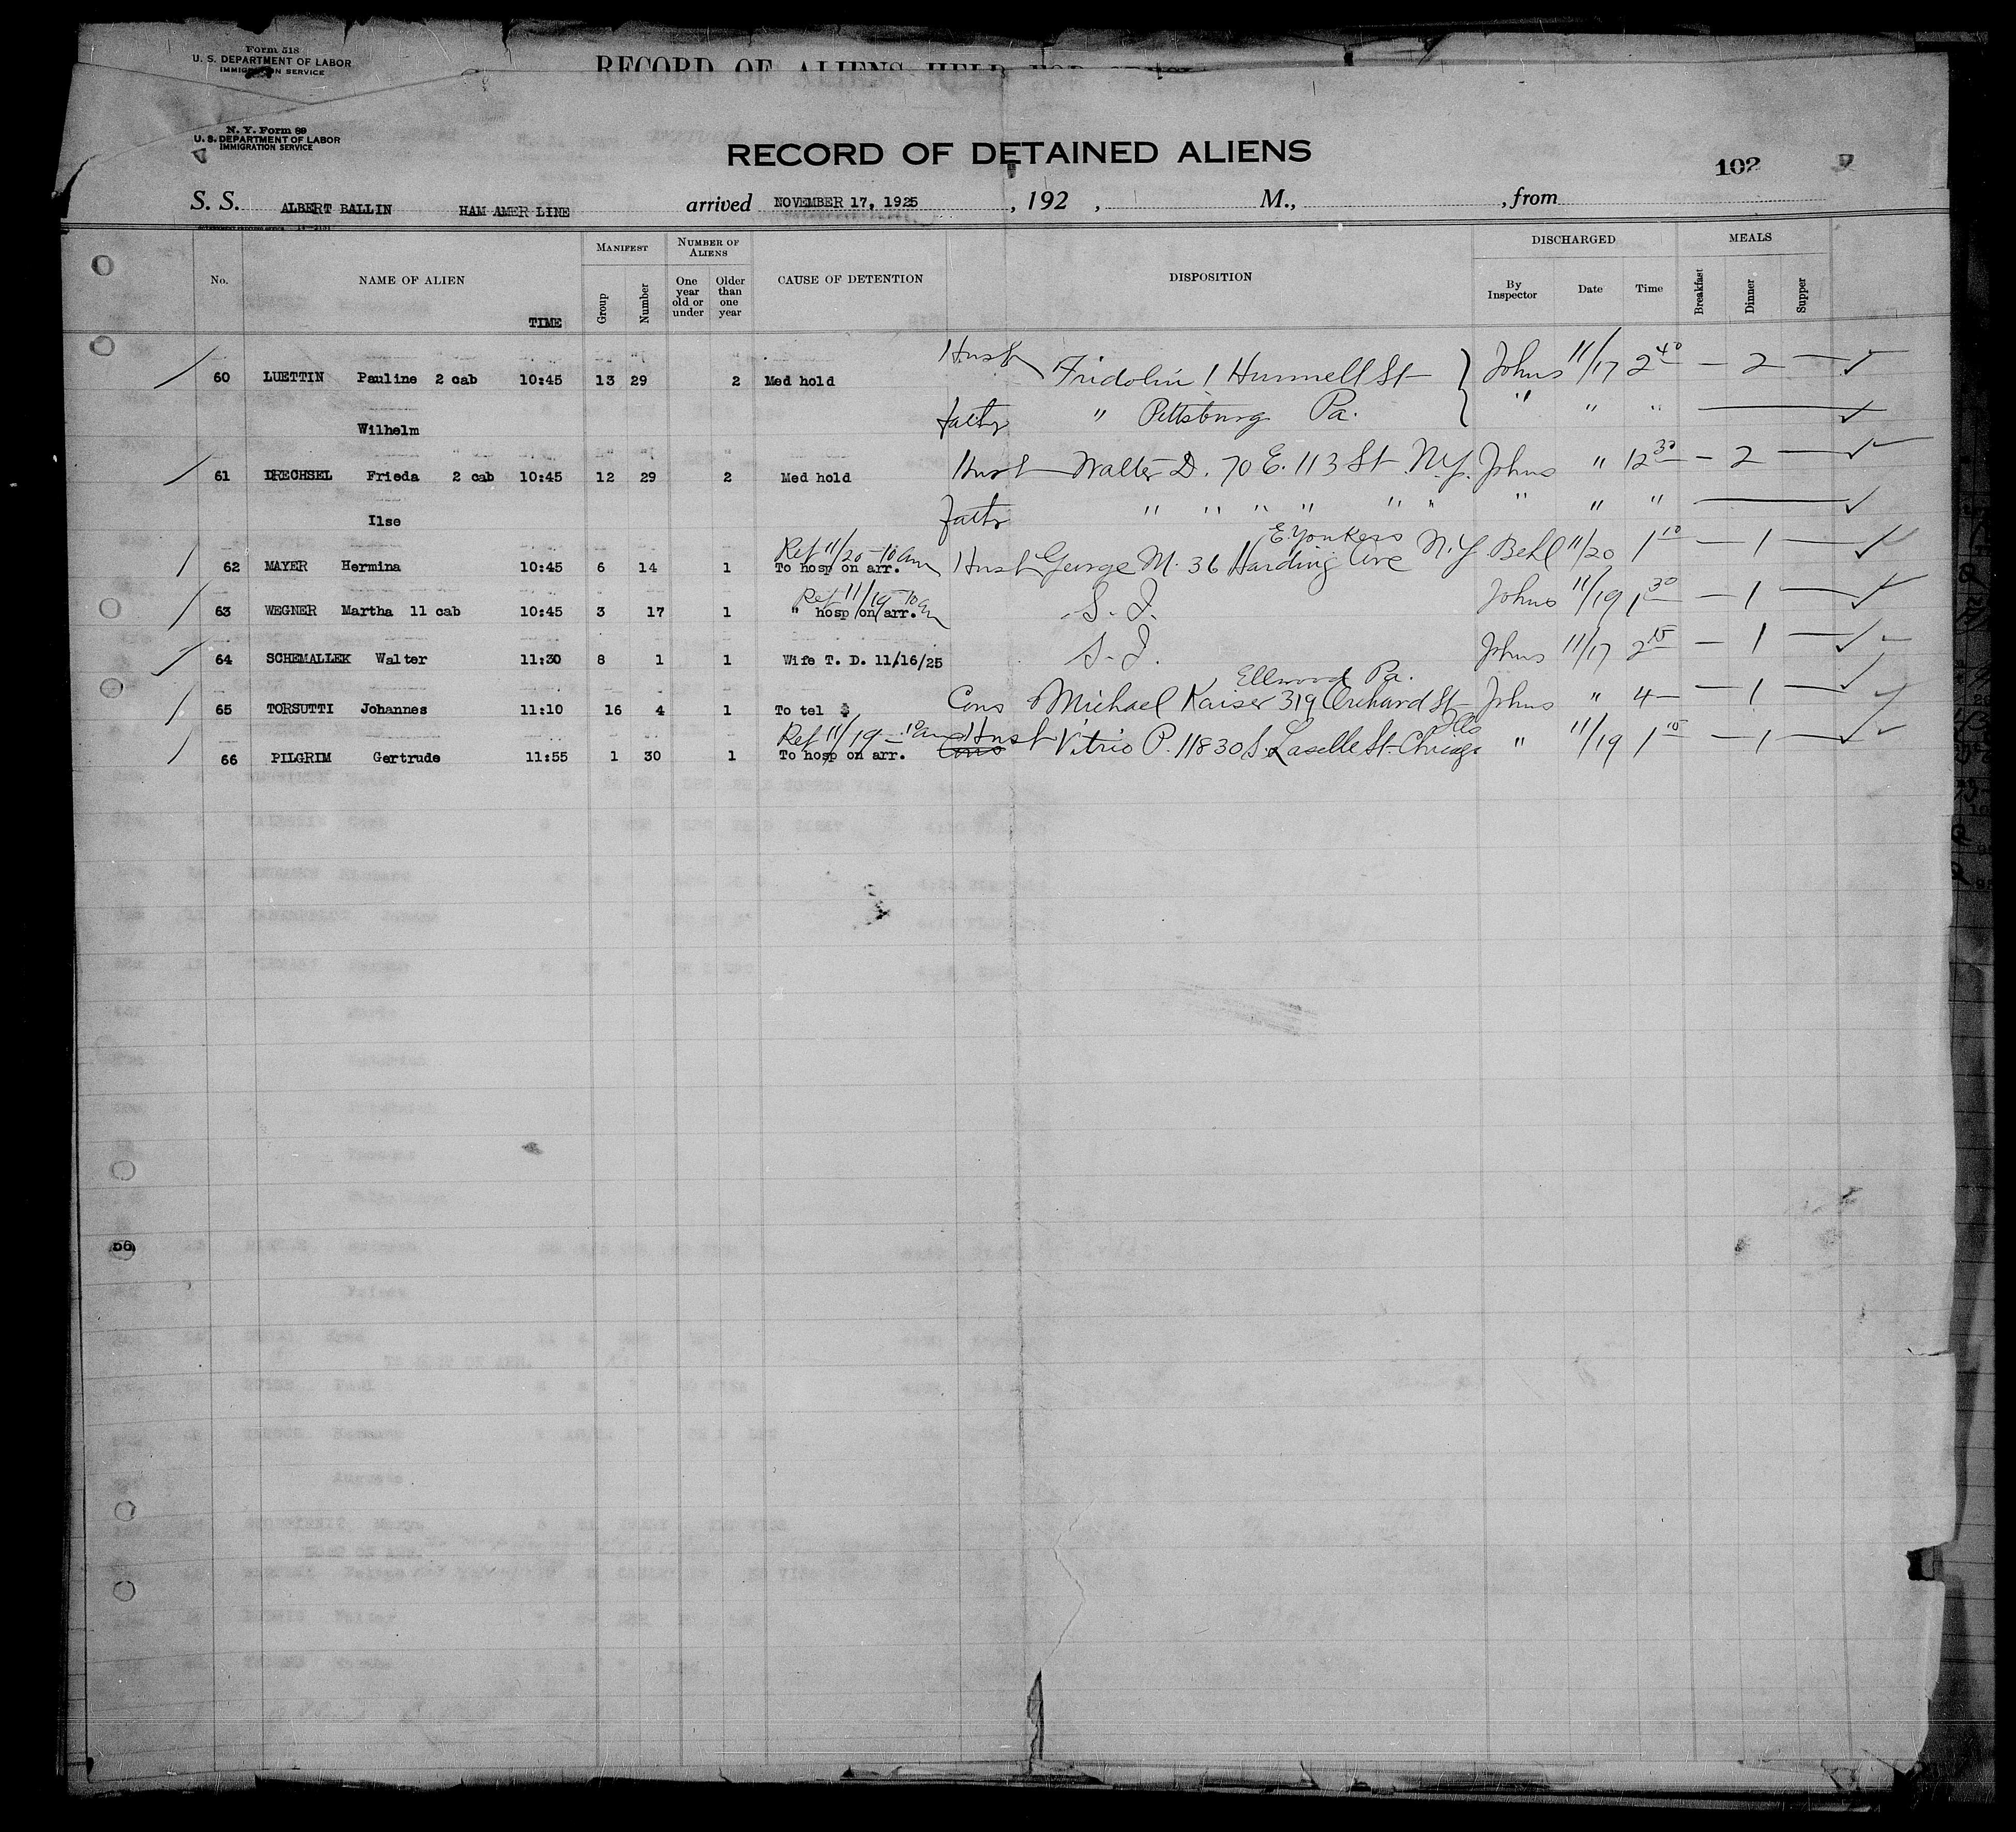 Form 518
U. S. DEPARTMENT OF LABOR
IMMIGRATION SERVICE
RECORD OF ALIENS HELD FOR
N. Y. Form 89
U. S. DEPARTMENT OF LABOR
IMMIGRATION SERVICE
RECORD OF DETAINED ALIENS
102
S. S. ALBERT BALLIN HAM AMER LINE arrived NOVEMBER 17, 1925, 192 , M., , from
MANIFEST NUMBER OF ALIENS DISCHARGED MEALS
No. NAME OF ALIEN TIME Group Number One year old or under Older than one year CAUSE OF DETENTION DISPOSITION By Inspector Date Time Breakfast Dinner Supper
60 LUETTIN Pauline 2 cab 10:45 13 29 2 Med hold Husb Fridolin 1 Hunnell St Johns 11/17 2 40 — 2 — ✓
Wilhelm fath " Pittsburg Pa. " " " — ✓
61 DRECHSEL Frieda 2 cab 10:45 12 29 2 Med hold Husb Walter D. 70 E. 113 St N.Y. Johns " 12 30 — 2 — ✓
Ilse fath " " " " " " " " " — ✓
Ret 11/20 - 10 am E. Yonkers
62 MAYER Hermina 10:45 6 14 1 To hosp on arr. Husb George M. 36 Harding Ave N.Y. Behl 11/20 1 10 — 1 — ✓
Ret 11/19 - 10 a
63 WEGNER Martha 11 cab 10:45 3 17 1 " hosp on arr. S. I. Johns 11/19 1 30 — 1 — ✓
64 SCHEMALLEK Walter 11:30 8 1 1 Wife T. D. 11/16/25 S. I. Johns 11/17 2 15 — 1 — ✓
Ellwood Pa.
65 TORSUTTI Johannes 11:10 16 4 1 To tel $ Cons Michael Kaiser 319 Orchard St Johns " 4 — 1 — ✓
Ret 11/19 - 10 am Husb Ills
66 PILGRIM Gertrude 11:55 1 30 1 To hosp on arr. Cons Vitrio P. 11830 S. Laselle St. Chicago " 11/19 1 15 — 1 — ✓